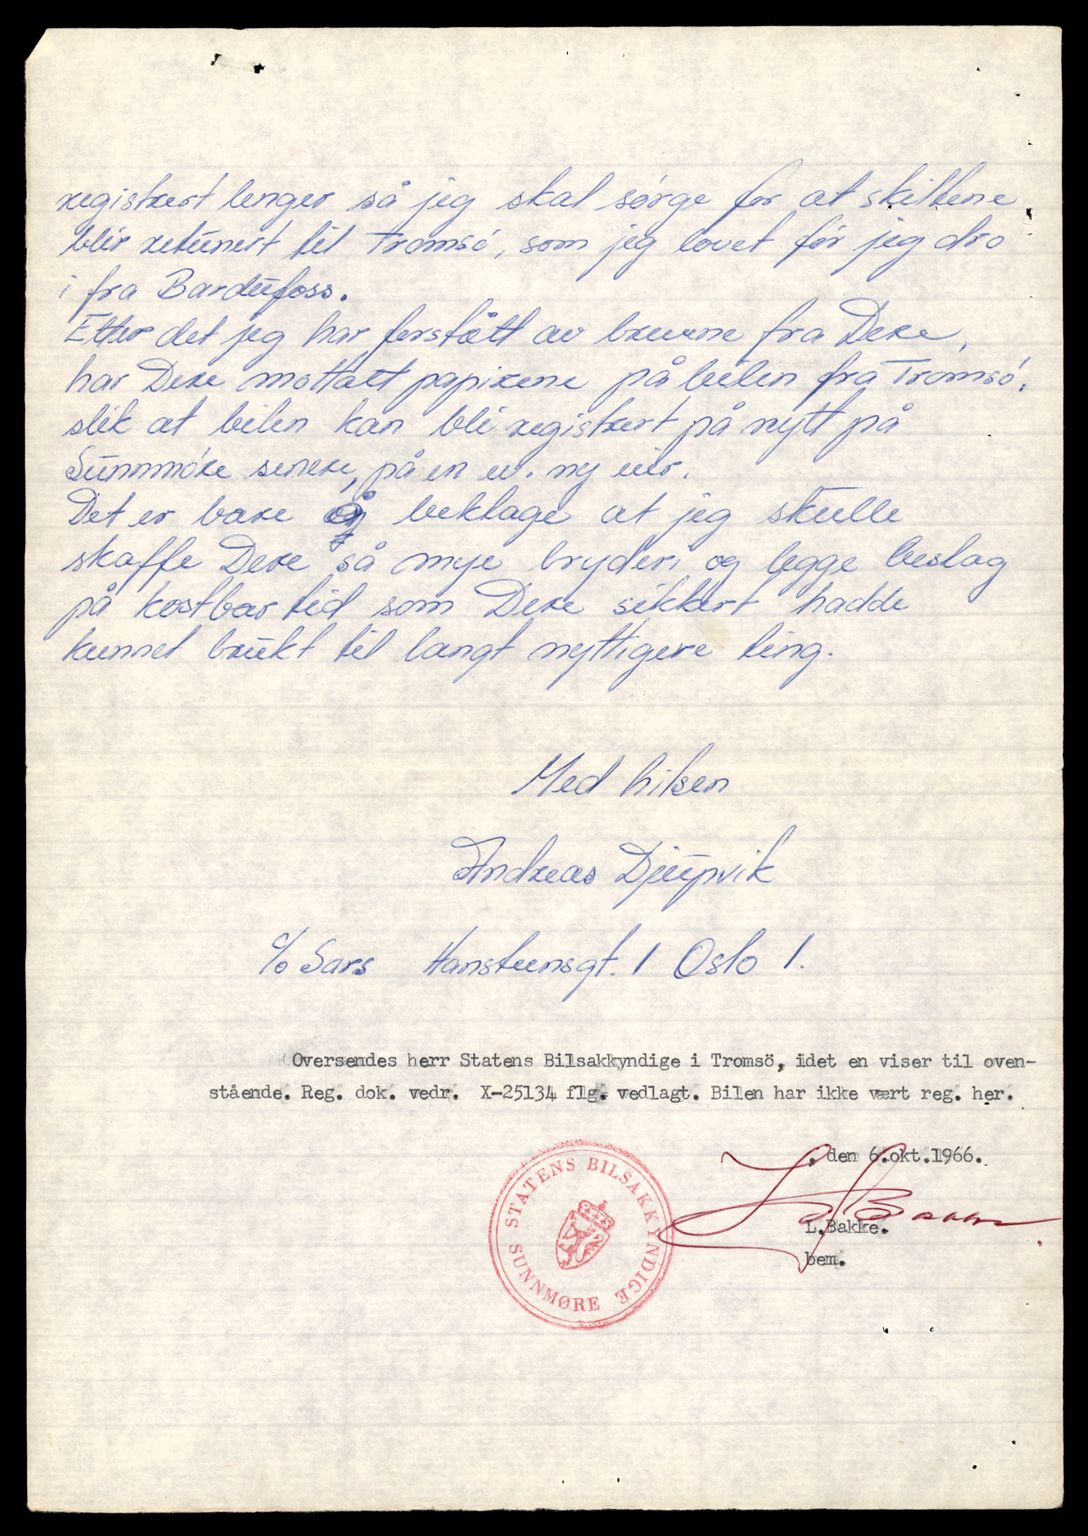 registrert lenger så jeg skal sørge for at skiltene
blir retunert til Tromsø, som jeg lovet før jeg dro
i fra Bardufoss.
Etter det jeg har forstått av brevene fra Dere,
har Dere mottatt papirene på bilen fra Tromsø,
slik at bilen kan bli registrert på nytt på
Sunnmøre senere, på en ev. ny eier.
Det er bare å beklage at jeg skulle
skaffe Dere så mye bryderi og legge beslag
på kostbar tid som Dere sikkert hadde
kunnet brukt til langt nyttigere ting.
Med hilsen
Andreas Djupvik
c/o Sars Hansteensgt. 1 Oslo 1.
Oversendes herr Statens Bilsakkyndige i Tromsö, idet en viser til oven-
stående. Reg. dok. vedr. X-25134 flg. vedlagt. Bilen har ikke vært reg. her.
. den 6.okt.1966.
L Bakke
L.Bakke.
bem.
STATENS BILSAKKYNDIGE
SUNNMØRE